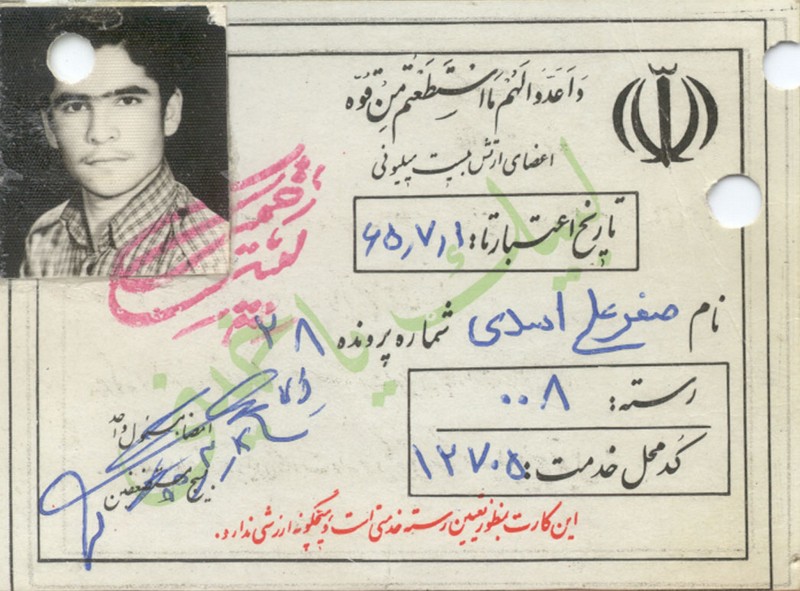 وَاَعِدُّوا لَهُمْ مَا اسْتَطَعْتُمْ مِنْ قُوَّه
اعضای ارتش بیست میلیونی
تاریخ اعتبار تا: ۶۵٫۷٫۱
نام صفرعلی اسدی شماره پرونده ۳۸
رسته: ۰۰۸
کُد محل خدمت: ۱۲۷۰۵
امضاء مسئول واحد
بسیج مستضعفین
این کارت بمنظور تعیین رسته خدمتی است و هیچگونه ارزشی ندارد.
لبیک یا خمینی